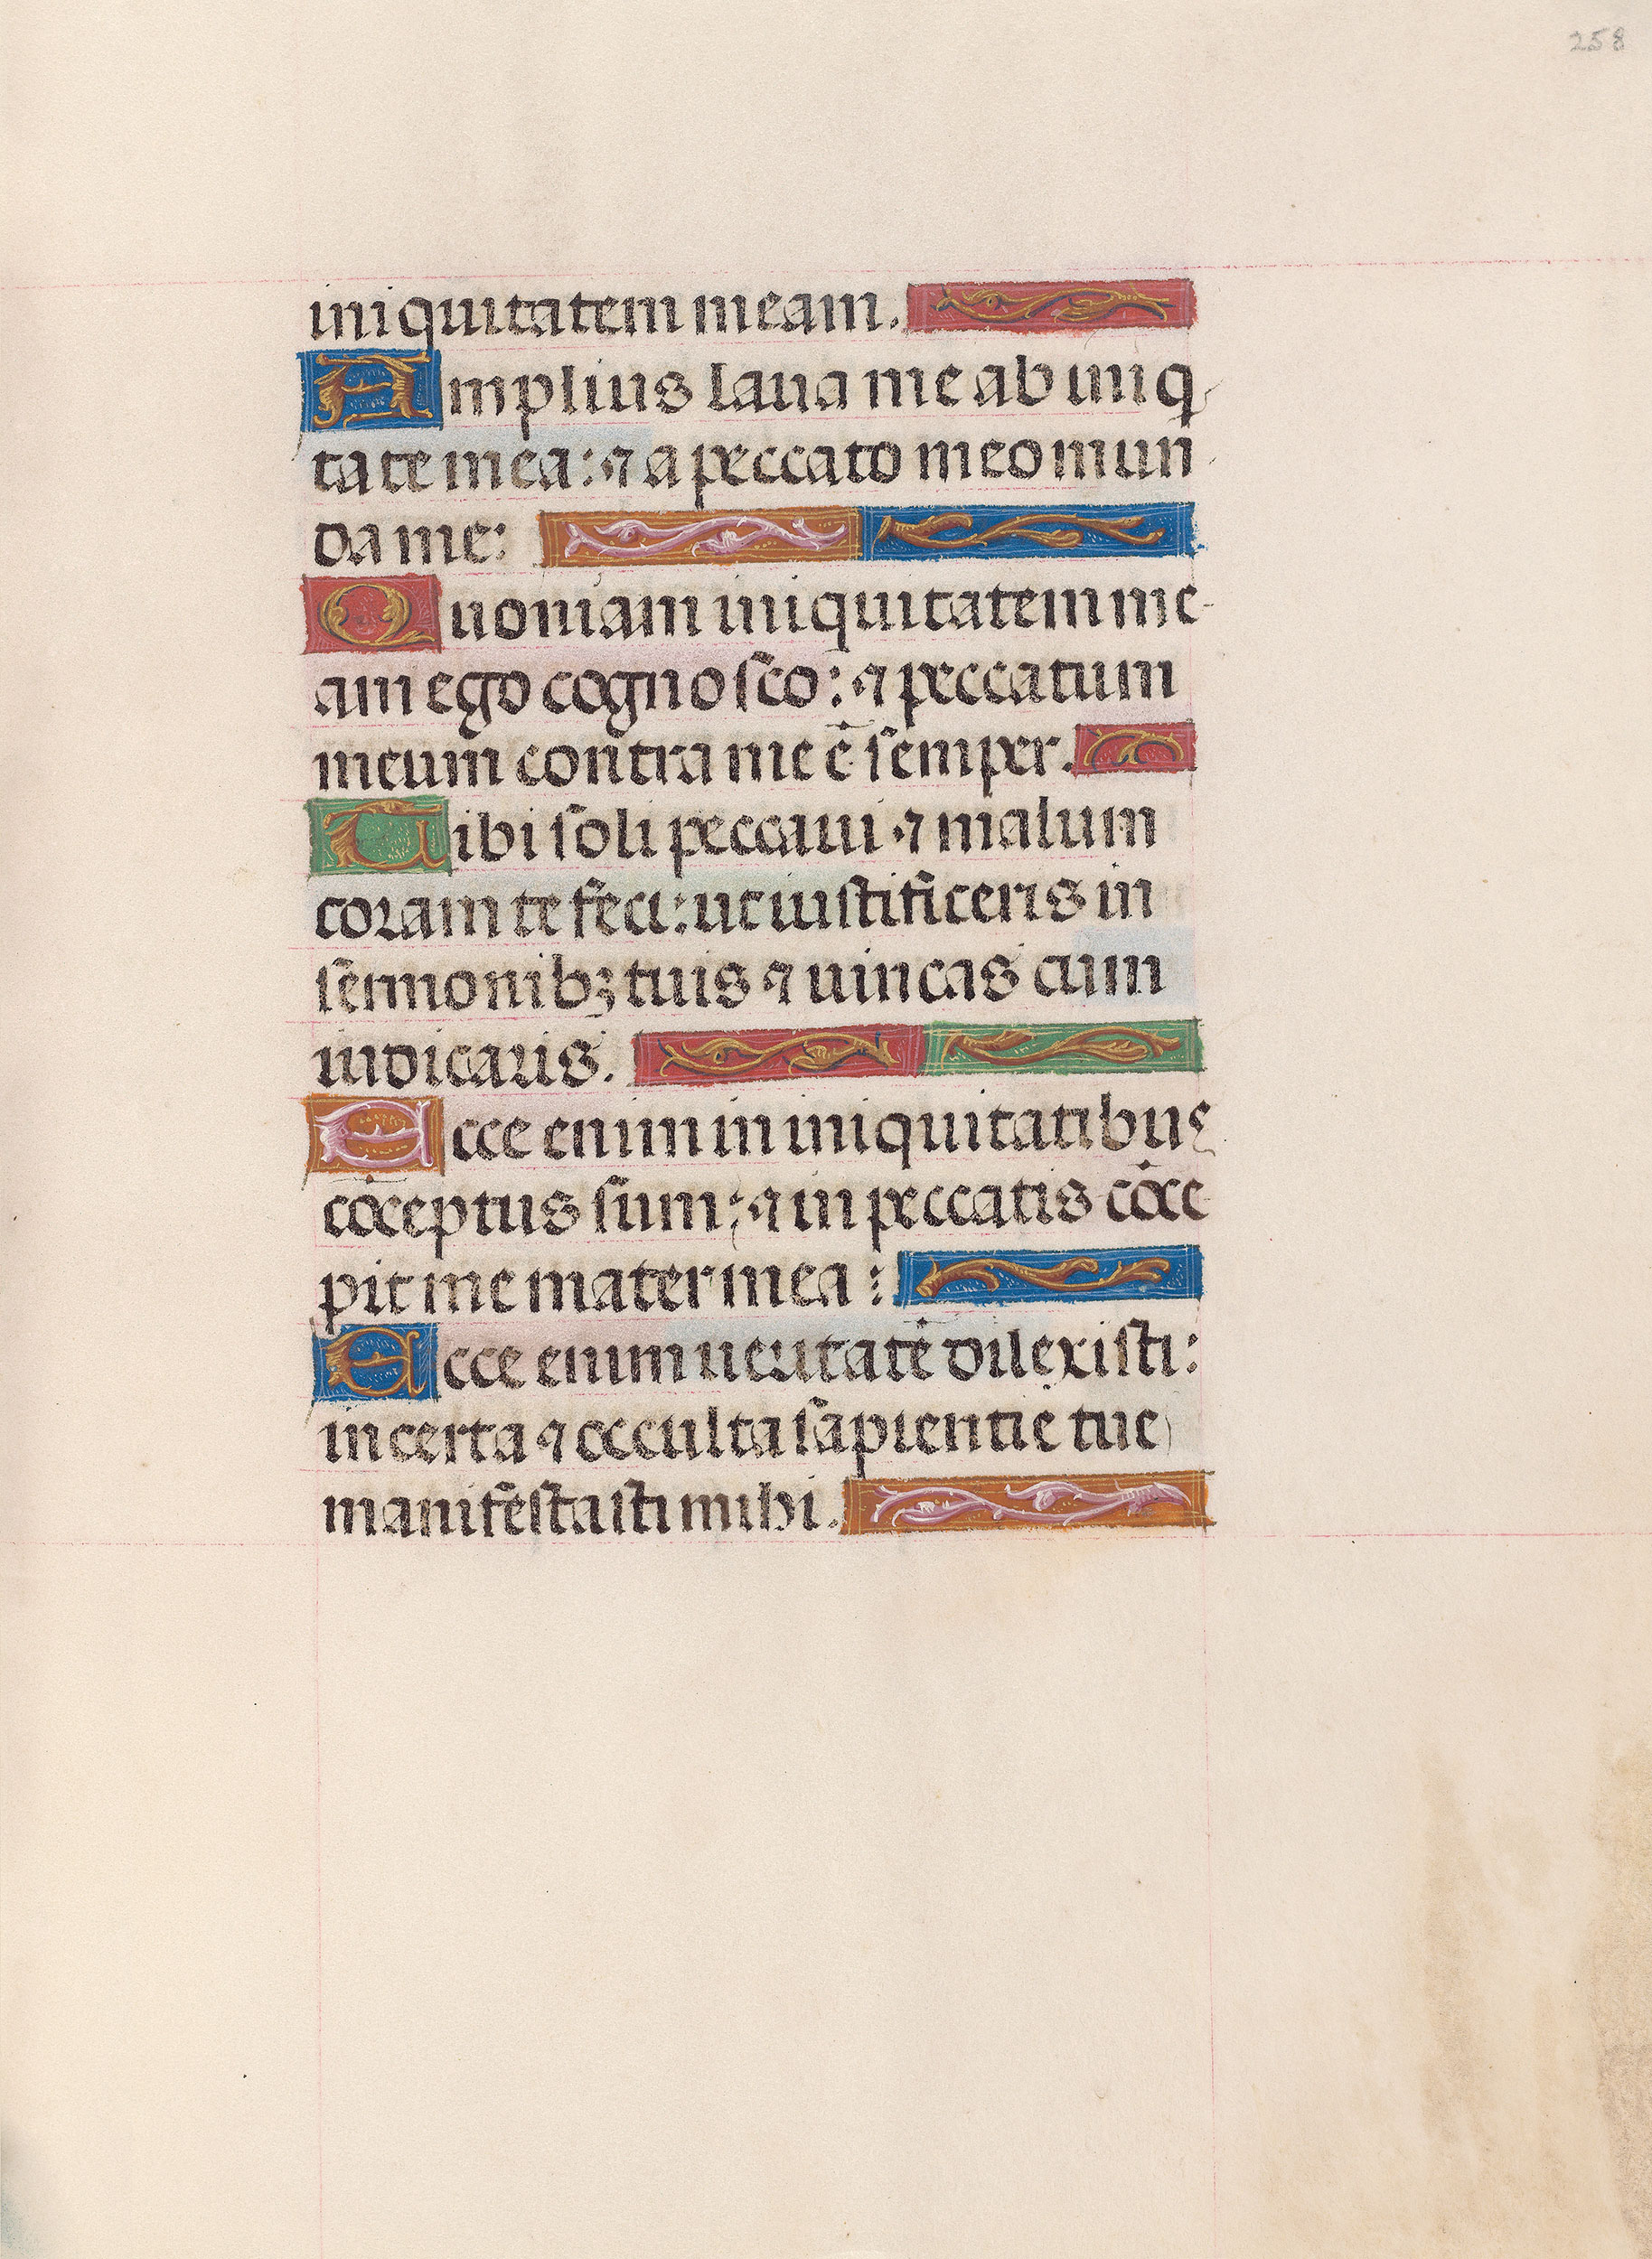 258
iniquitatem meam.
Amplius laua me ab iniq
tate mea: ⁊ a peccato meo mun
da me:
Quoniam iniquitatem me-
am ego cognosco: ⁊ peccatum
meum contra me ē semper.
Tibi soli peccaui ⁊ malum
coram te feci: ut iustificeris in
sermonibꝫ tuis ⁊ uincas cum
iudicaris.
Ecce enim in iniquitatibus
cōceptus sum: ⁊ in peccatis cōce
pit me mater mea:
Ecce enim ueritatē dilexisti:
incerta ⁊ occulta sapientie tue
manifestasti mihi.